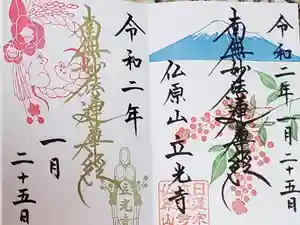 南無妙法蓮華経
令和二年一月二十五日
仏原山立光寺
南無妙法蓮華経
令和二年
一月
二十五日
立光寺
日蓮宗